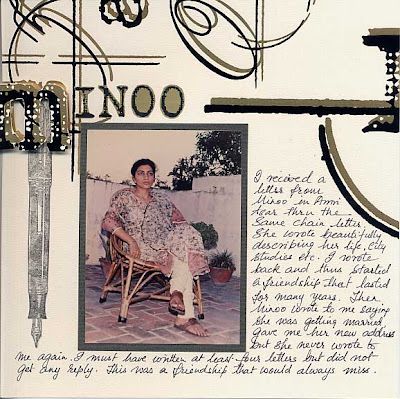 MINOO
I recived a
letter from
Minoo in
dear thru the
same chain letter.
She wrote beautifully
describing her life, City
Studies etc. I wrote
back and thus started
a friendship that lasted
for many years. Then
Minoo wrote to me saying
She was getting married,
Gave me her new address
but She never wrote to
me again. I must have written at least four letters but did not
get any reply. This was a friendship that would always miss.